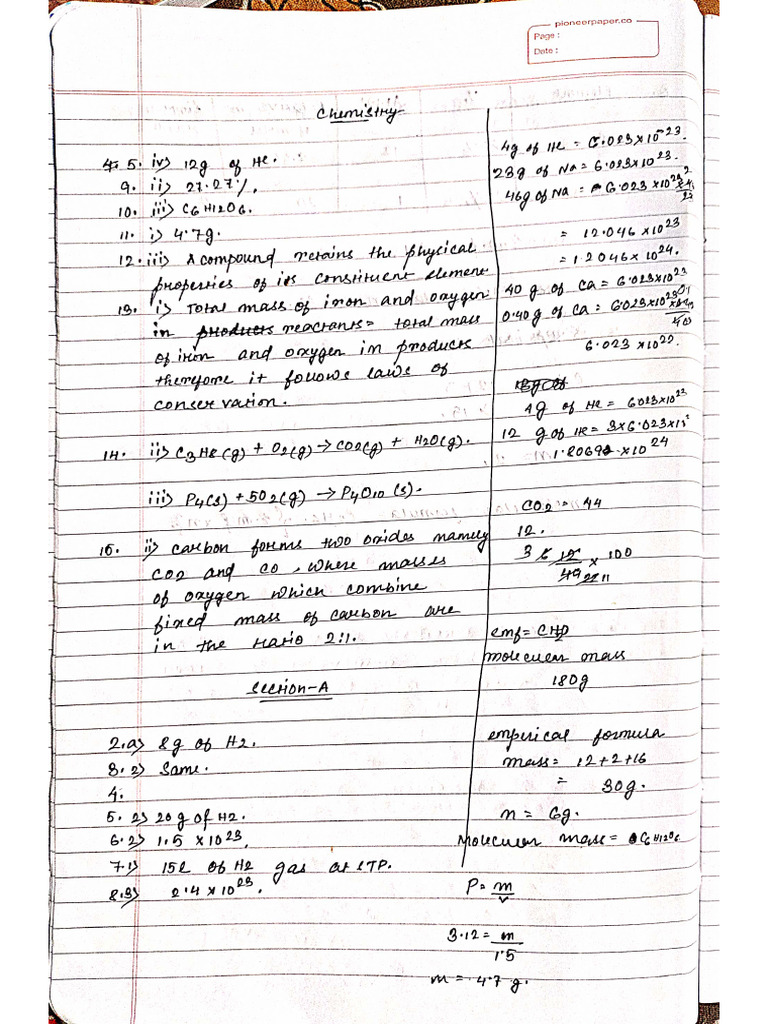 pioneerpaper.co
Page :
Date :
Chemistry
5. iv) 12g of He.
9. ii) 27.27%.
10. iii) C6H12O6.
11. i) 4.7g.
12. iii) A compound retains the physical
properties of its constituent element
13. i) Total mass of iron and oxygen
in products reactants = total mass
of iron and oxygen in products
therefore it follows laws of
conservation.
14. ii) C3H8(g) + O2(g) → CO2(g) + H2O(g).
iii) P4(s) + 5O2(g) → P4O10(s).
15. ii) carbon forms two oxides namely
CO2 and CO, where masses
of oxygen which combine
fixed mass of carbon are
in the ratio 2:1.
Section-A
2. a) 8g of H2.
3. 2) Same.
4.
5. 2) 20g of H2.
6. 2) 1.5 × 10^23.
7. 1) 15l of H2 gas at STP.
8. 3) 2.4 × 10^23.
4g of He = 6.023×10^23.
23g of Na = 6.023×10^23.
46g of Na = 6.023×10^23
23
= 12.046 × 10^23
= 1.2046 × 10^24.
40 g of Ca = 6.023×10^23
0.40g of Ca = 6.023×10^23
40
6.023 × 10^22.
4g of He = 6.023×10^23
12 g of He = 3×6.023×10
1.8069 × 10^24
CO2 = 44
12.
3 6 12 × 100
44 22 11
emf = CH2O
molecular mass
180g
empirical formula
mass = 12+2+16
= 30g.
n = 6g.
Molecular mass = C6H12O6
P = m
v
3.12 = m
1.5
m = 4.7 g.